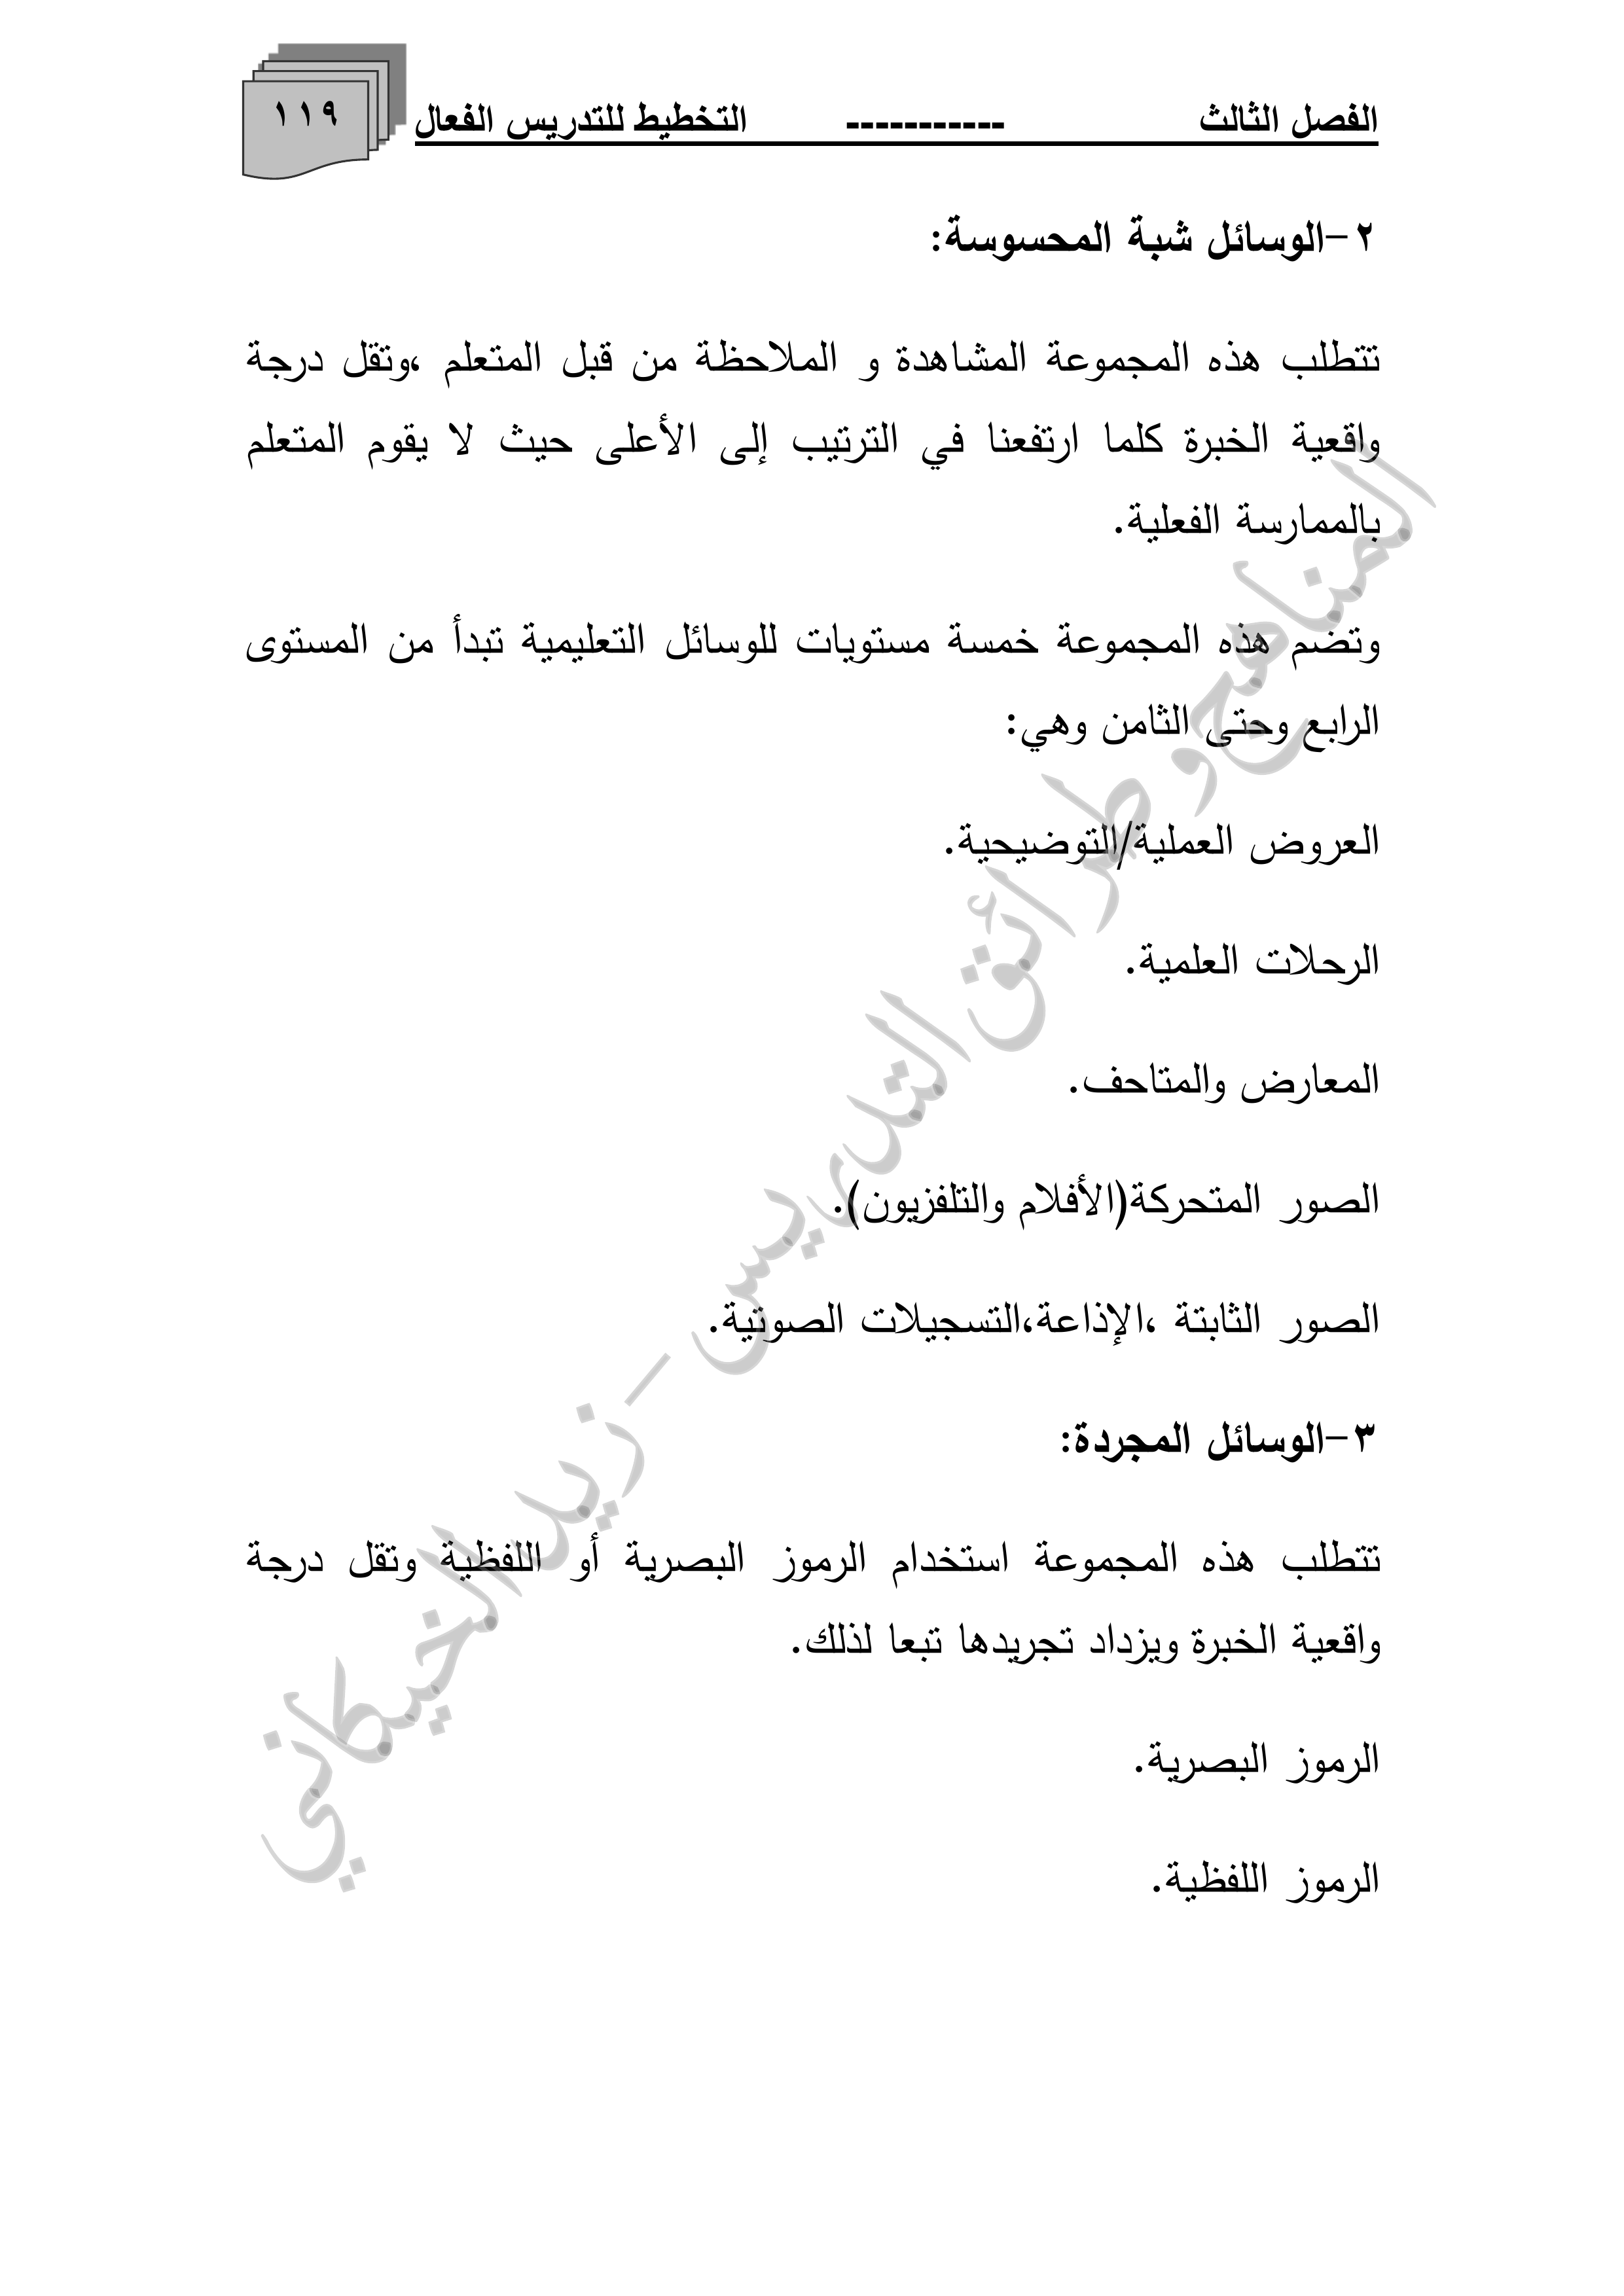 الفصل الثالث ----------- التخطيط للتدريس الفعال ١١٩
٢-الوسائل شبة المحسوسة:
تتطلب هذه المجموعة المشاهدة و الملاحظة من قبل المتعلم ،وتقل درجة
واقعية الخبرة كلما ارتفعنا في الترتيب إلى الأعلى حيث لا يقوم المتعلم
بالممارسة الفعلية.
وتضم هذه المجموعة خمسة مستويات للوسائل التعليمية تبدأ من المستوى
الرابع وحتى الثامن وهي:
العروض العملية/التوضيحية.
الرحلات العلمية.
المعارض والمتاحف.
الصور المتحركة(الأفلام والتلفزيون).
الصور الثابتة ،الإذاعة،التسجيلات الصوتية.
٣-الوسائل المجردة:
تتطلب هذه المجموعة استخدام الرموز البصرية أو اللفظية وتقل درجة
واقعية الخبرة ويزداد تجريدها تبعا لذلك.
الرموز البصرية.
الرموز اللفظية.
المناهج و طرائق التدريس - زيد الخيكاني